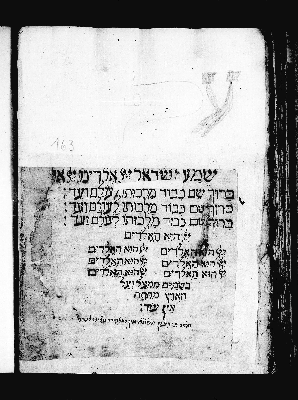 ע
163
שמע ישראל יי אלדים יי אחד
ברוך שם כבוד מלכותו לעולם ועד:
ברוך שם כבוד מלכותו לעולם ועד:
ברוך שם כבוד מלכותו לעולם ועד:
יי הוא האלדים
יי הוא האלדים יי הוא האלדים
יי הוא האלדים יי הוא האלדים
יי הוא האלדים יי הוא האלדים
בשמים ממעל ועל
הארץ מתחת
אין עוד: